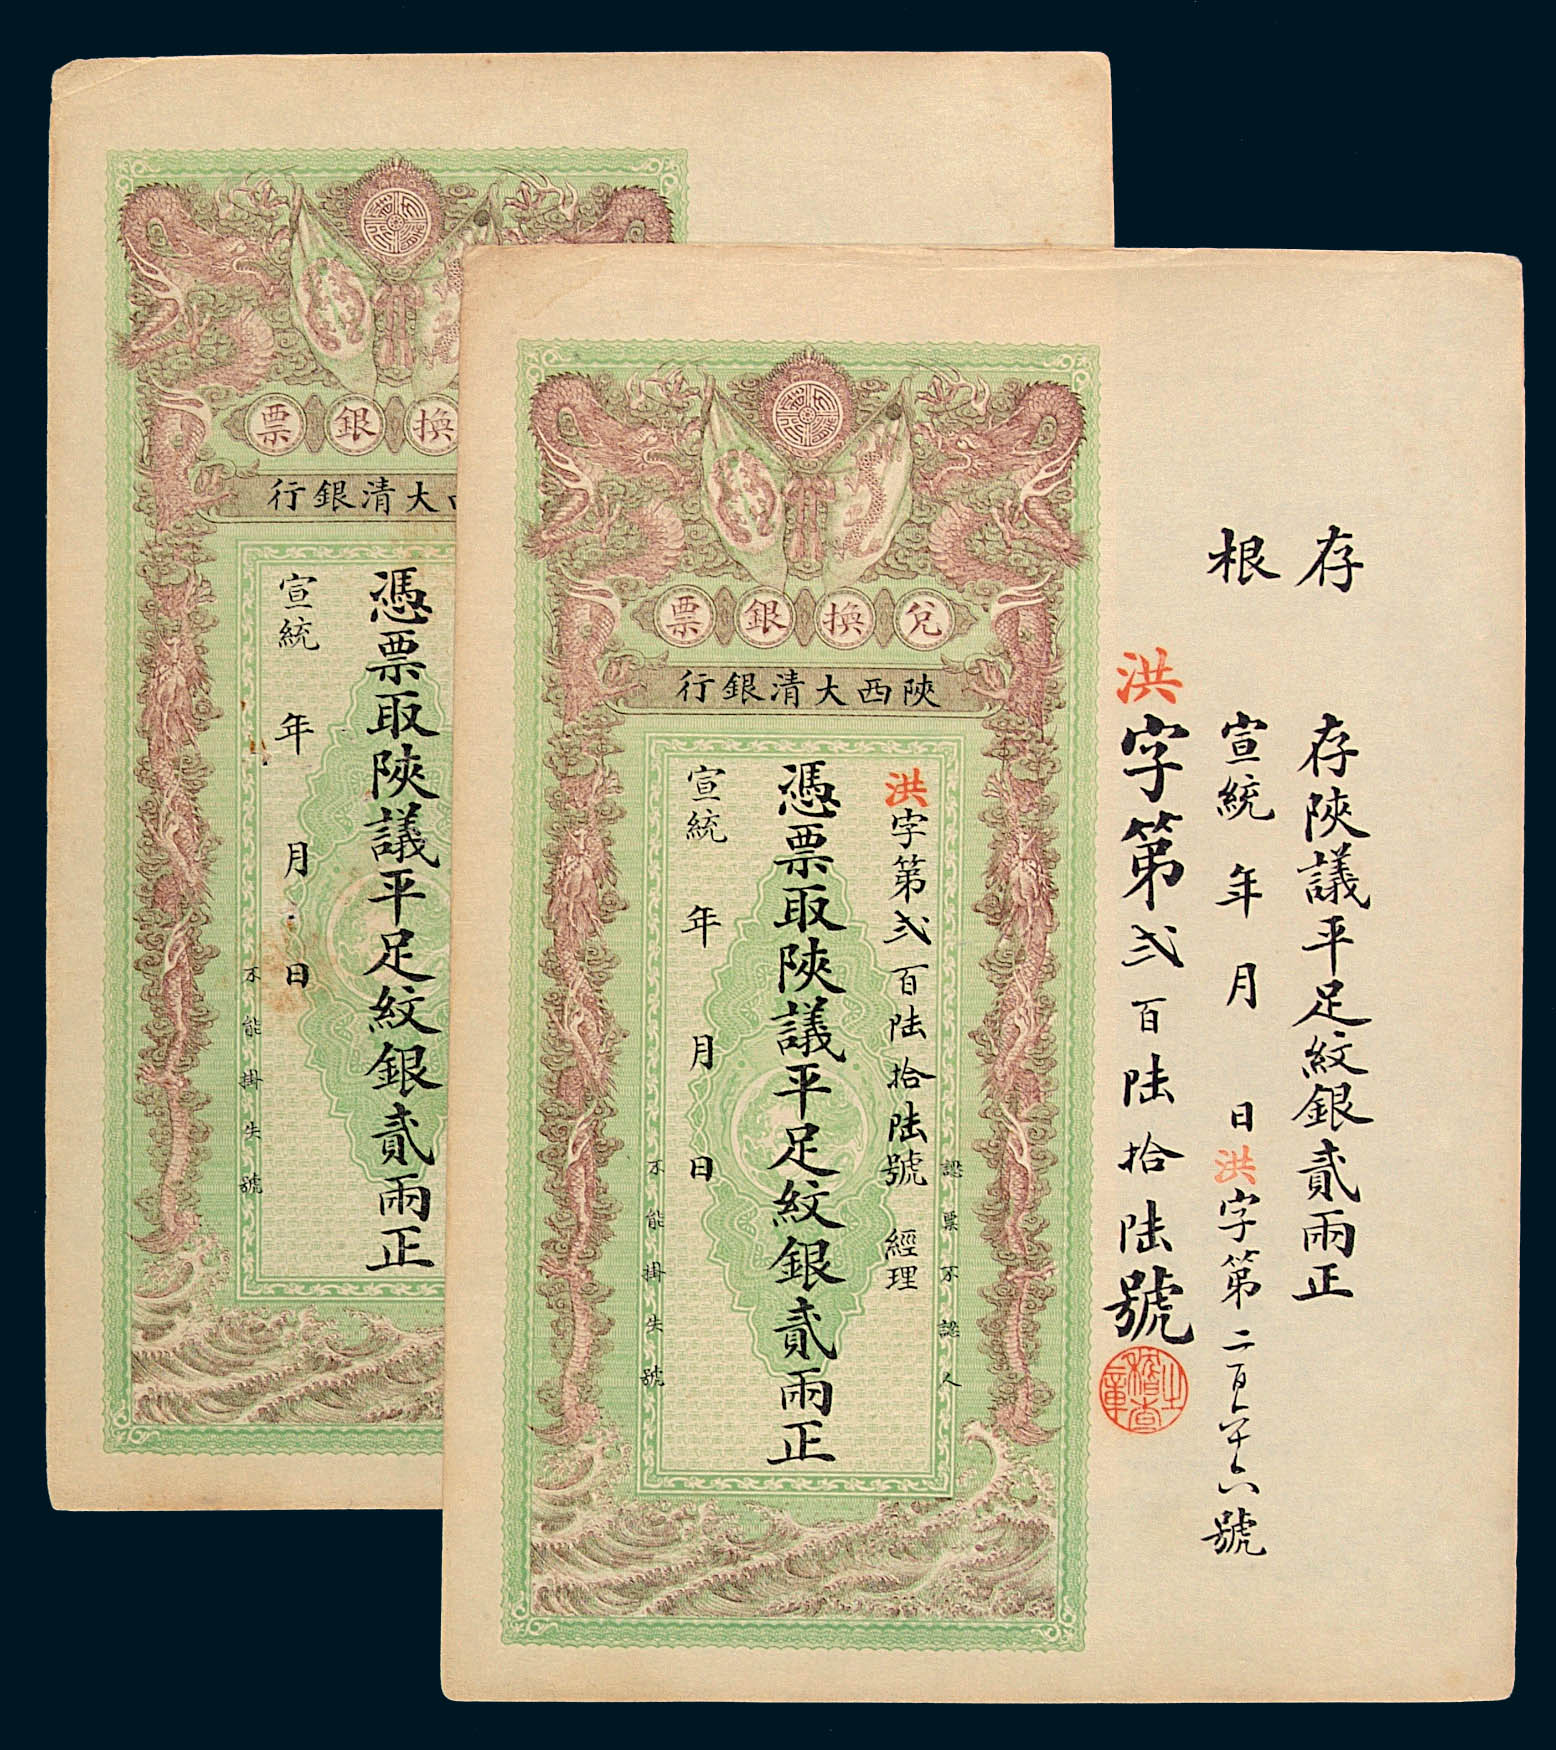 兌換銀票
陝西大清銀行
洪字第弍百陸拾陸號 經理
憑票取陝議平足紋銀貳兩正
宣統 年 月 日
認票不認人
不能掛失號
存根
存陝議平足紋銀貳兩正
宣統 年 月 日 洪字第二百六十六號
洪字第弍百陸拾陸號
稽查之章
換銀票
大清銀行
憑票取陝議平足紋銀貳兩正
宣統 年 月 日
不能掛失號